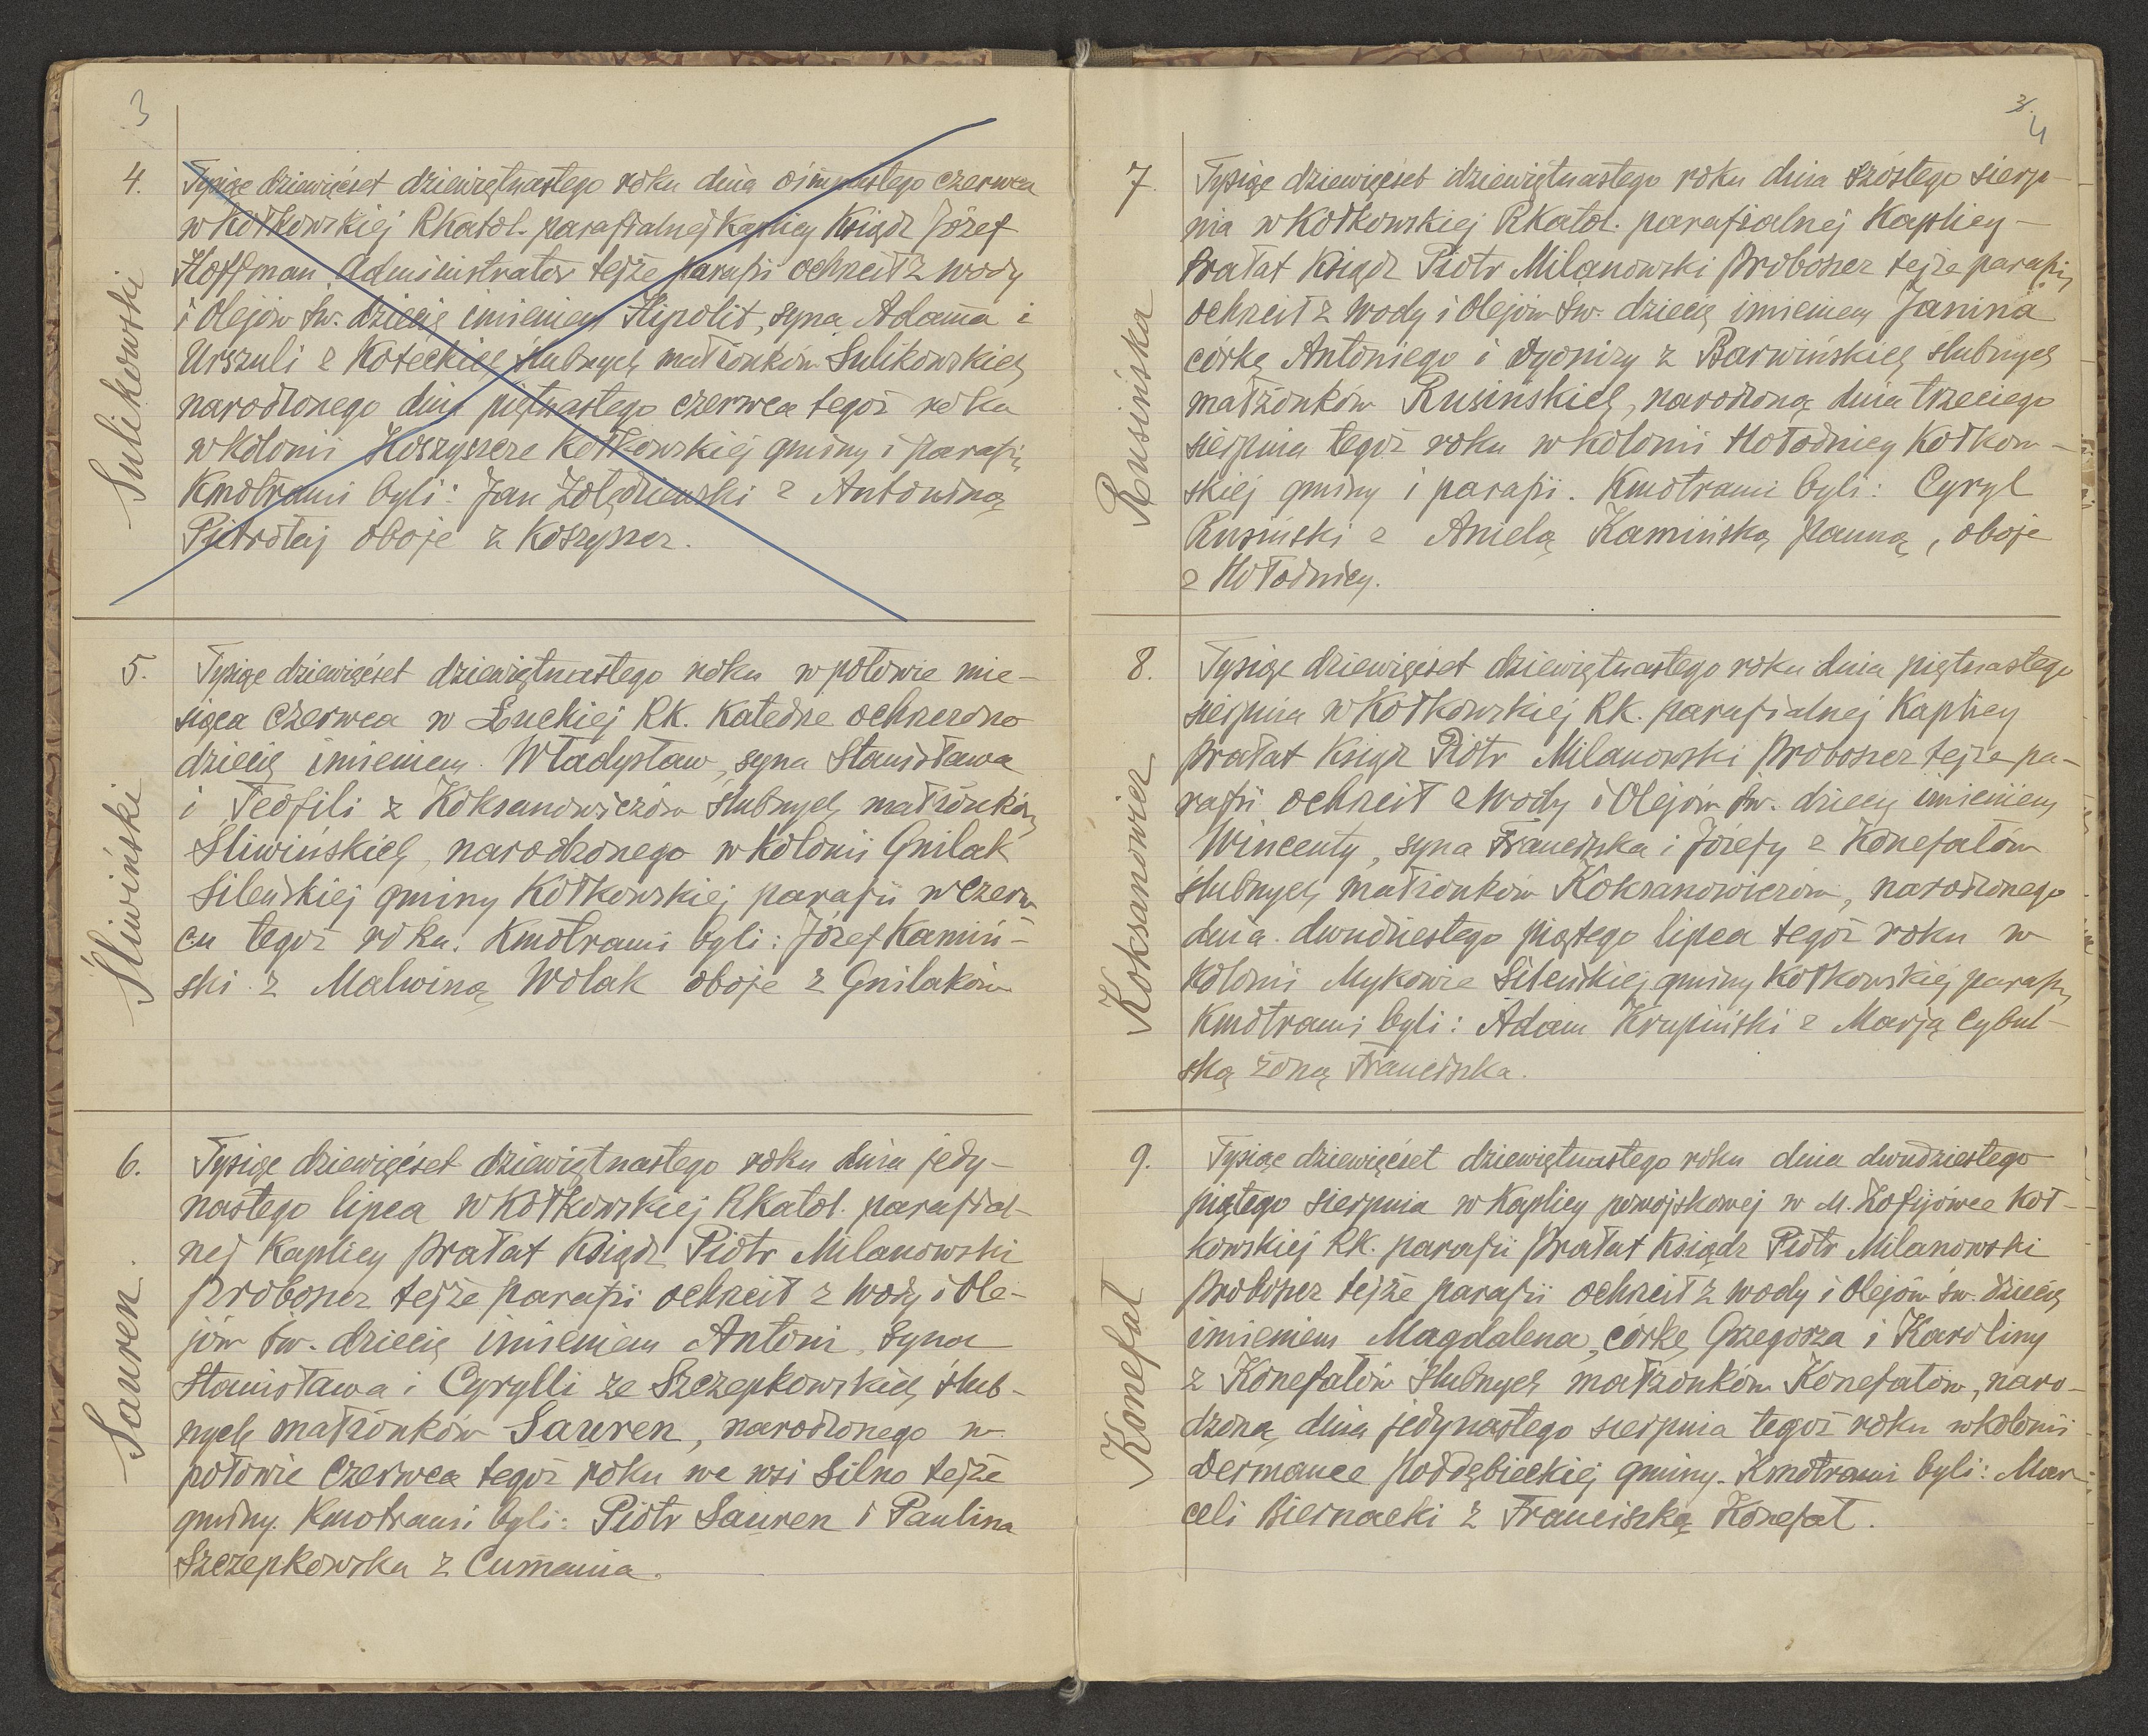 3
4.
Sulikowski
Tysiąc dziewięćset dziewiętnastego roku dnia ośmnastego czerwca
w Kołkowskiej RKatol. parafialnej Kaplicy Ksiądz Józef
Hoffman Administrator tejże parafii ochrzcił z wody
i Olejów św. dziecię imieniem Hipolit, syna Adama i
Urszuli z Koteckich ślubnych małżonków Sulikowskich
narodzonego dnia piętnastego czerwca tegoż roku
w kolonii Koszyszcze Kołkowskiej gminy i parafii
Kmotrami byli: Jan Żołędziewski z Antoniną
Pietrołaj oboje z Koszyszcz.
5.
Śliwiński
Tysiąc dziewięćset dziewiętnastego roku w połowie mie-
siąca czerwca w Łuckiej RK. Katedrze ochrzczono
dziecię imieniem Władysław, syna Stanisława
i Teofili z Koksanowiczów ślubnych małżonków
Śliwińskich, narodzonego w kolonii Gnilak
Sileńskiej gminy Kołkowskiej parafii w czerw-
cu tegoż roku. Kmotrami byli: Józef Kamiń-
ski z Malwiną Wolak oboje z Gnilaków
6.
Sauren.
Tysiąc dziewięćset dziewiętnastego roku dnia jedy-
nastego lipca w Kołkowskiej RKatol. parafial-
nej Kaplicy Prałat Ksiądz Piotr Milanowski
Proboszcz tejże parafii ochrzcił z wody i Ole-
jów św. dziecię imieniem Antoni, syna
Stanisława i Cyrylli ze Szczepkowskich ślub-
nych małżonków Sauren, narodzonego w
połowie czerwca tegoż roku we wsi Silno tejże
gminy. Kmotrami byli: Piotr Sauren i Paulina
Szczepkowska z Cumania.
3.
4
7.
Rusińska
Tysiąc dziewięćset dziewiętnastego roku dnia szóstego sierp-
nia w Kołkowskiej RKatol. parafialnej Kaplicy -
Prałat Ksiądz Piotr Milanowski Proboszcz tejże parafii
ochrzcił z wody i Olejów św. dziecię imieniem Janina
córkę Antoniego i Dyonizy z Barwińskich ślubnych
małżonków Rusińskich, narodzoną dnia trzeciego
sierpnia tegoż roku w kolonii Hołodnicy Kołkow-
skiej gminy i parafii. Kmotrami byli: Cyryl
Rusiński z Anielą Kamińską panną, oboje
z Hołodnicy.
8.
Koksanowicz
Tysiąc dziewięćset dziewiętnastego roku dnia piętnastego
sierpnia w Kołkowskiej RK. parafialnej Kaplicy
Prałat Ksiądz Piotr Milanowski Proboszcz tejże pa-
rafii ochrzcił z wody i Olejów św. dziecię imieniem
Wincenty, syna Franciszka i Józefy z Konefałów
ślubnych małżonków Koksanowiczów, narodzonego
dnia dwudziestego piątego lipca tegoż roku w
kolonii Mykowie Sileńskiej gminy Kołkowskiej parafii
Kmotrami byli: Adam Krupiński z Marją Cybul-
ską żoną Franciszka.
9.
Konefał
Tysiąc dziewięćset dziewiętnastego roku dnia dwudziestego
piątego sierpnia w Kaplicy powojskowej w M. Zofijówce Koł-
kowskiej RK. parafii Prałat Ksiądz Piotr Milanowski
Proboszcz tejże parafii ochrzcił z wody i Olejów św. dziecię
imieniem Magdalena, córkę Grzegorza i Karoliny
z Konefałów ślubnych małżonków Konefałów, naro-
dzoną dnia jedynastego sierpnia tegoż roku w kolonii
Dermance Poddębieckiej gminy. Kmotrami byli: Mar-
celi Biernacki z Franciszką Konefał.